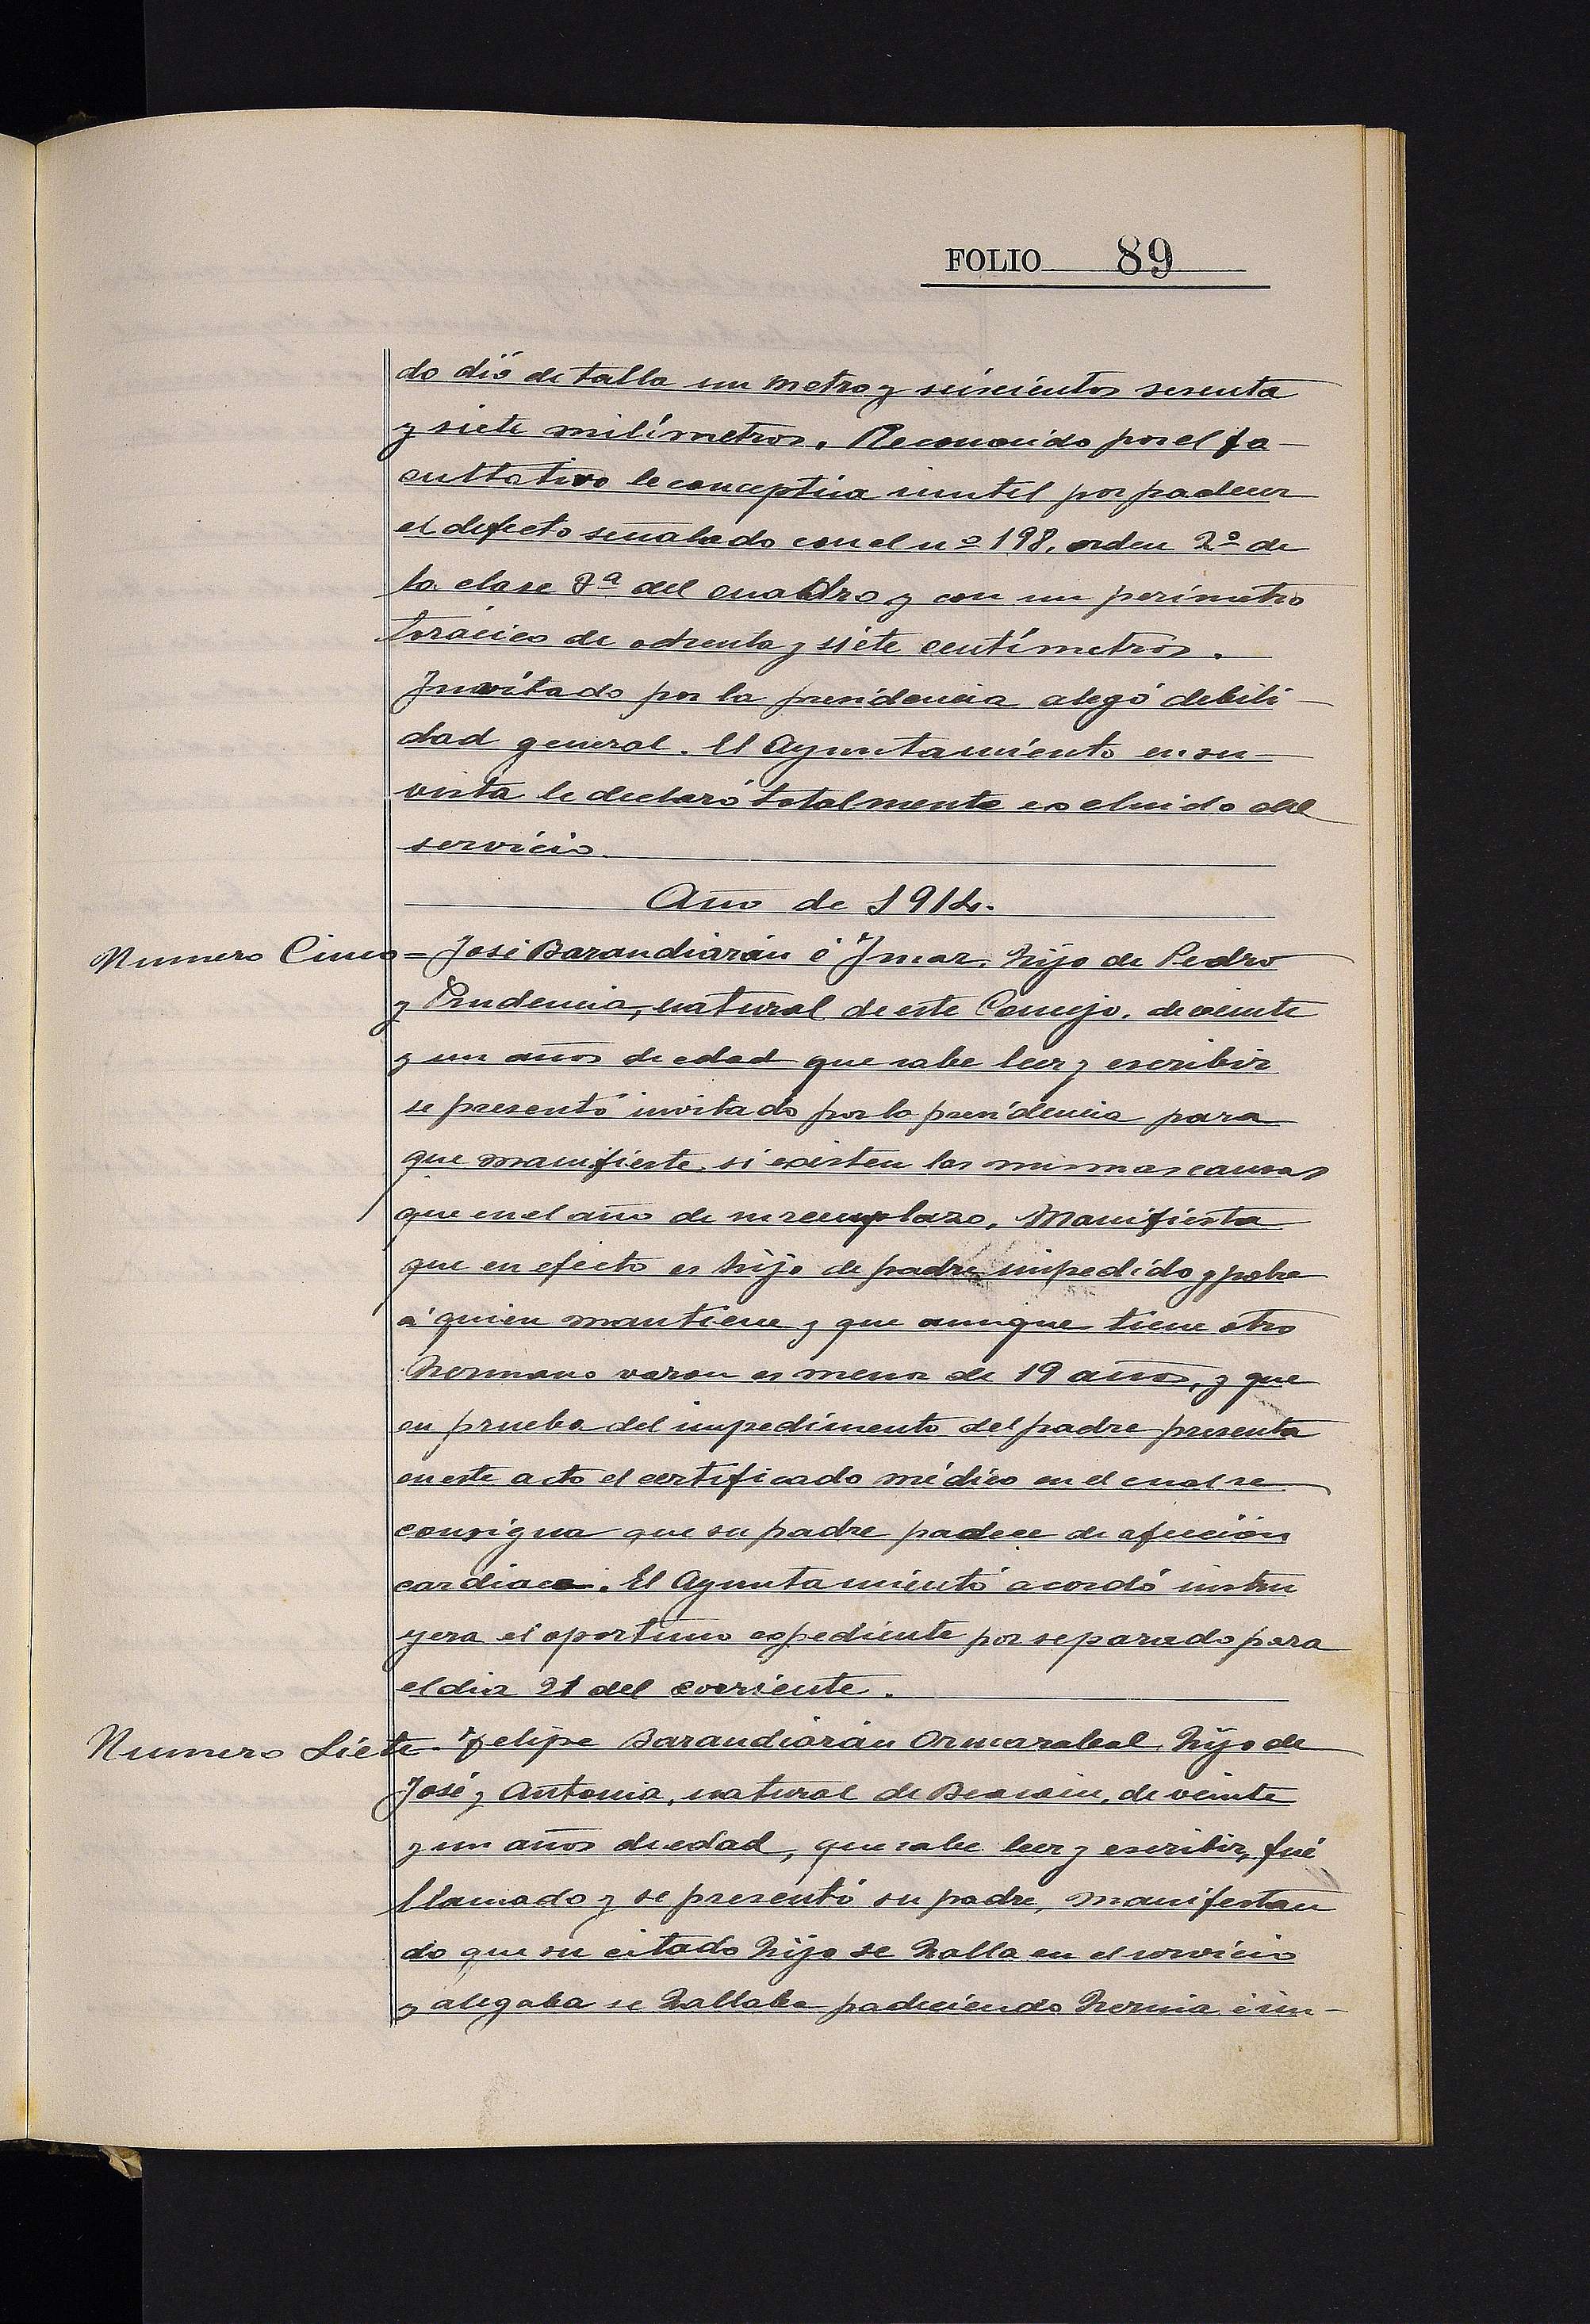 FOLIO 89
do dió de talla un metro y seiscientos sesenta
y siete milímetros. Reconocido por el fa-
cultativo le conceptúa inutil por padecer
el defecto señalado con el nº 198, orden 2º de
la clase 3ª del cuadro y con un perímetro
torácico de ochenta y siete centímetros.
Invitado por la presidencia alegó debili-
dad general. El Ayuntamiento en su
vista le declaró totalmente excluido del
servicio.
Año de 1914.
Numero Cinco = José Barandiarán é Imaz, hijo de Pedro
y Prudencia, natural de este Concejo, de veinte
y un años de edad que sabe leer y escribir
se presentó invitado por la presidencia para
que manifieste si existen las mismas causas
que en el año de su reemplazo. Manifiesta
que en efecto es hijo de padre impedido y pobre
á quien mantiene y que aunque tiene otro
hermano varon es menor de 19 años, y que
en prueba del impedimento del padre presenta
en este acto el certificado médico en el cual se
consigna que su padre padece de afección
cardiaca. El Ayuntamiento acordó instru
yera el oportuno expediente por separado para
el dia 21 del corriente.
Numero Siete. Felipe Barandiarán Ormazabal, hijo de
José y Antonia, natural de Beasain, de veinte
y un años de edad, que sabe leer y escribir, fué
llamado y se presentó su padre, manifestan
do que su citado hijo se halla en el servicio
y alegaba se hallaba padeciendo hernia é im-